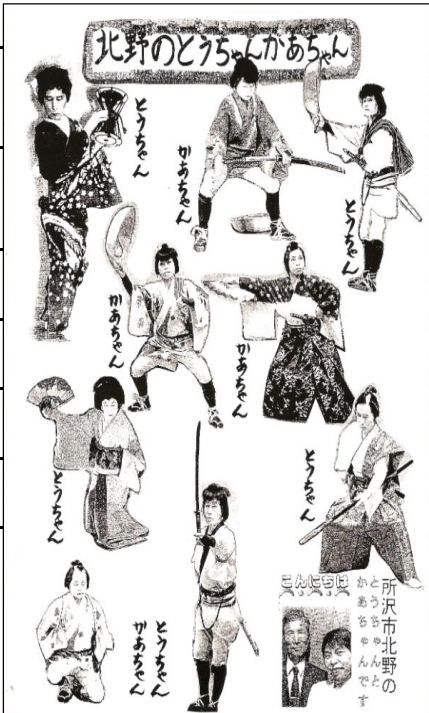 北野のとうちゃんかあちゃん
とうちゃん
かあちゃん
とうちゃん
かあちゃん
かあちゃん
とうちゃん
とうちゃん
とうちゃん
かあちゃん
こんにちは
所沢市北野の
とうちゃんと
かあちゃんです